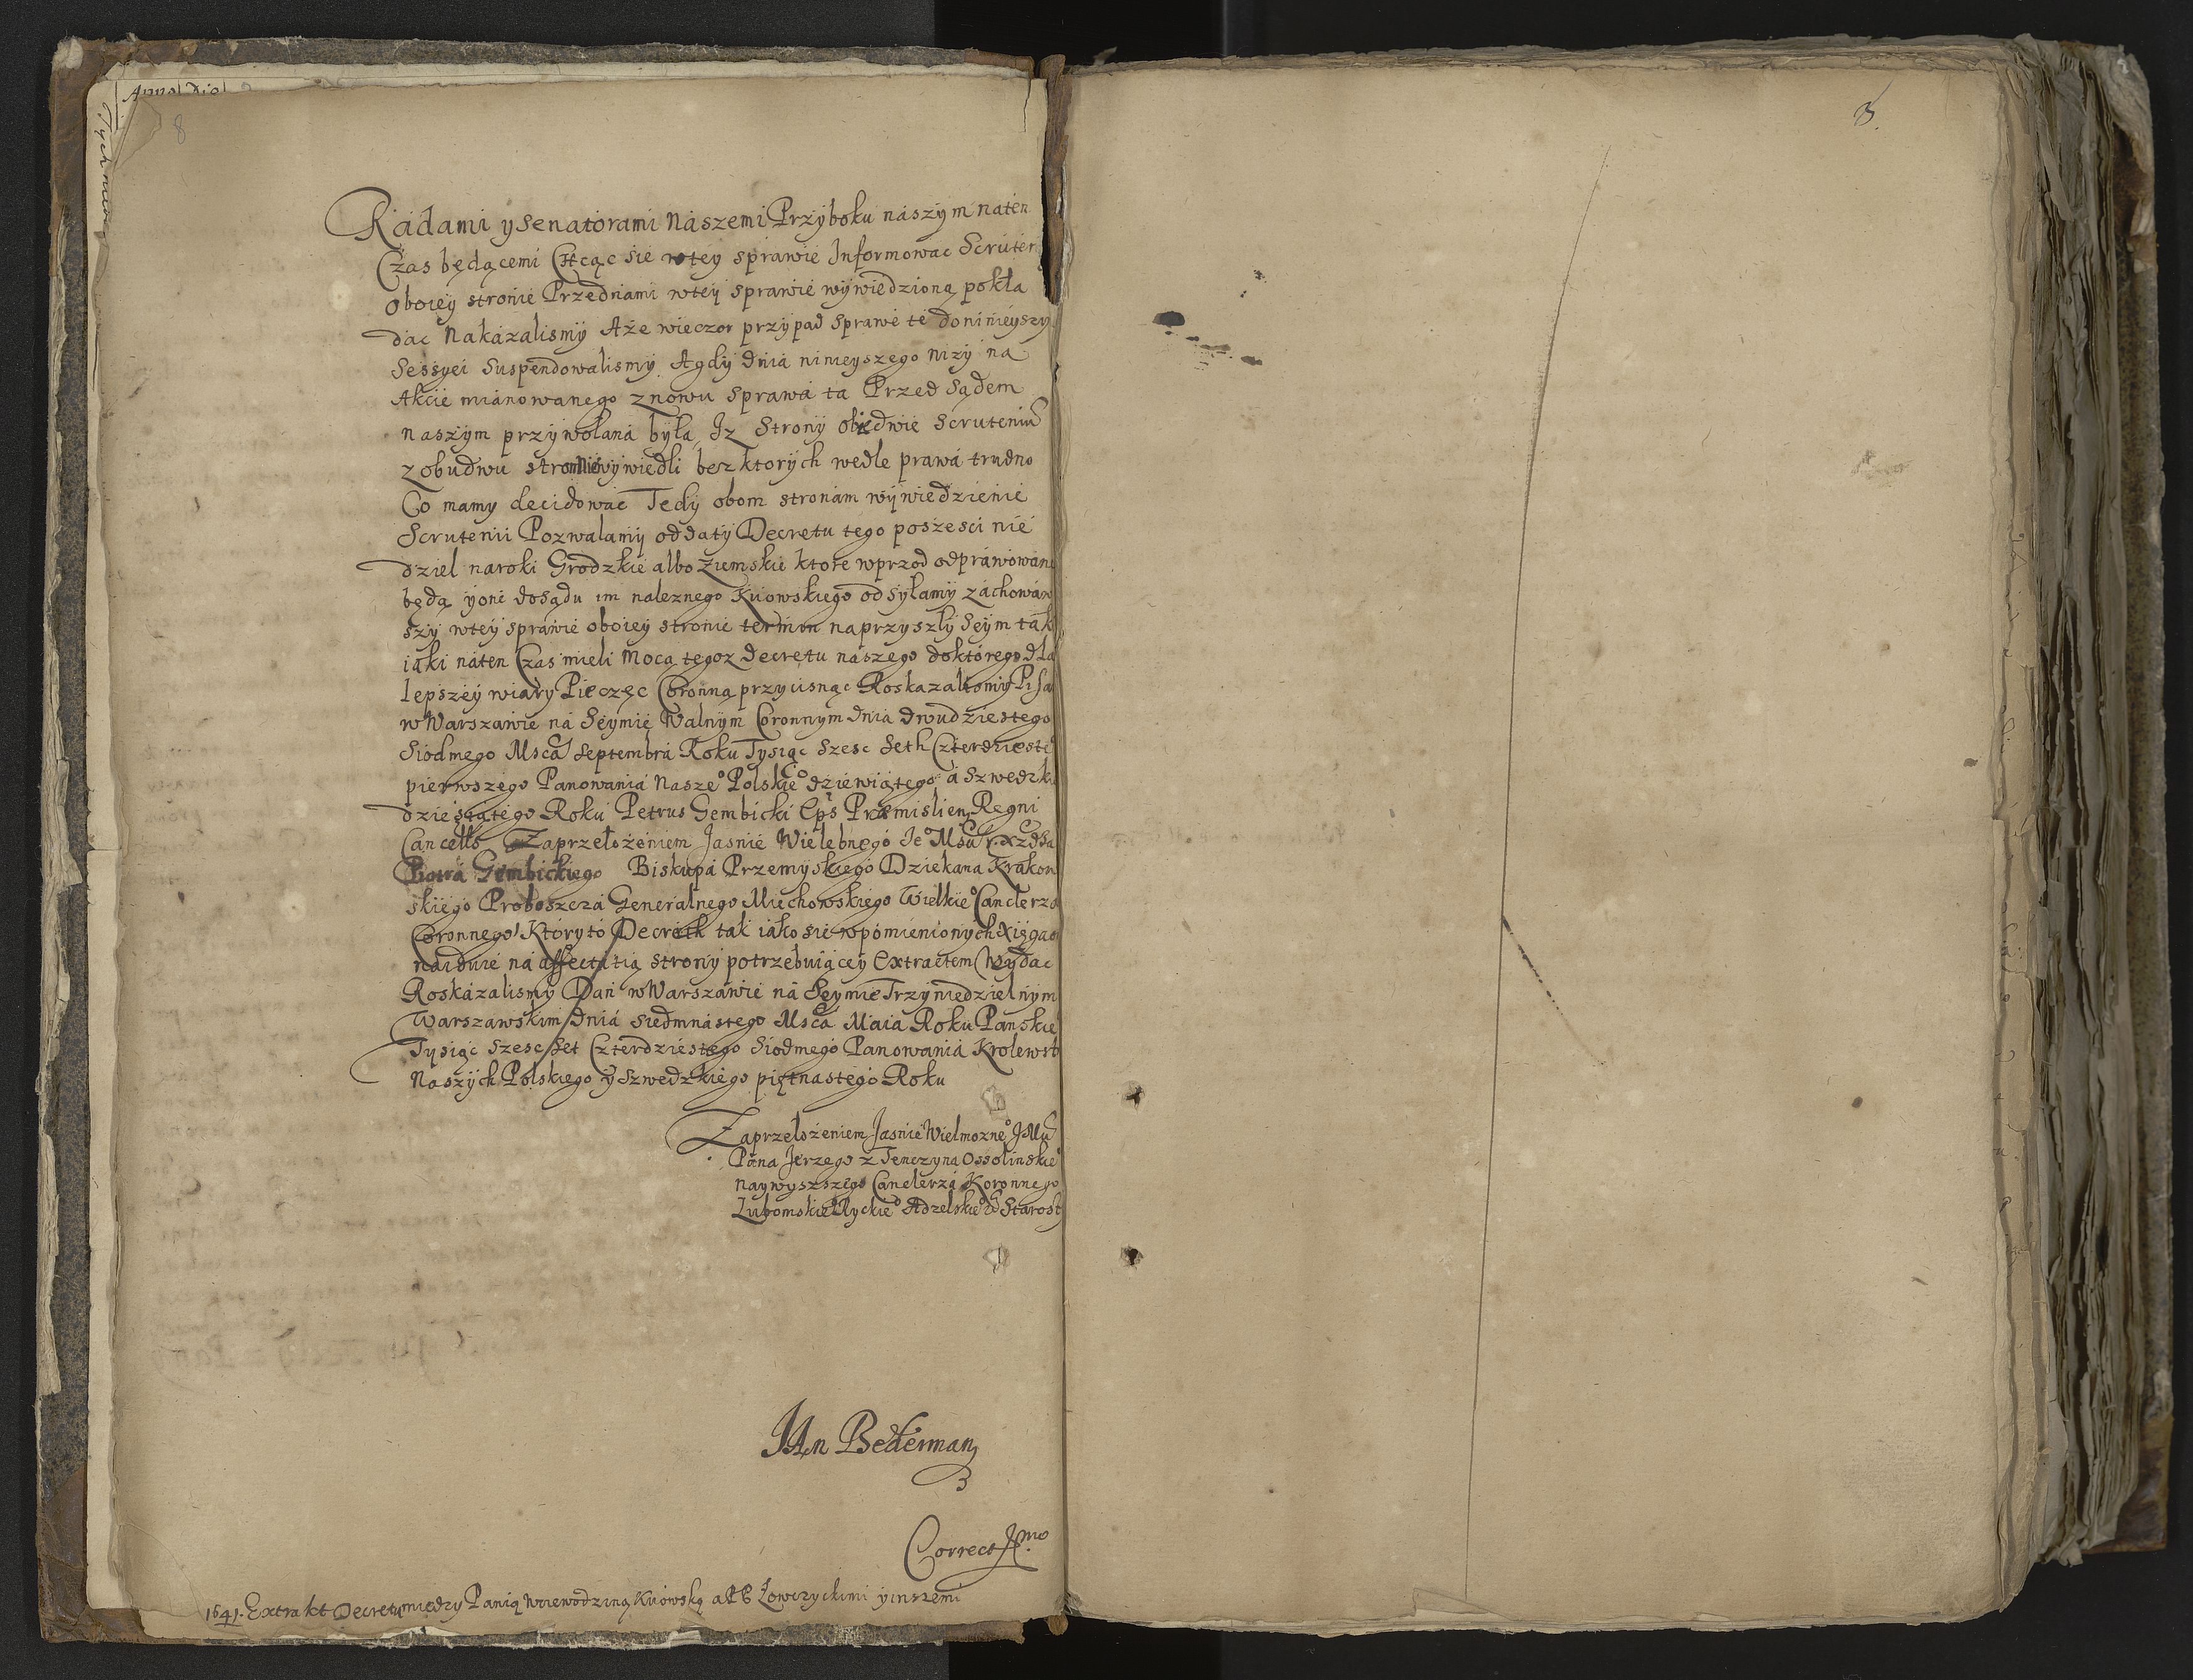 Anno Die
8
8.
Radami y Senatorami Naszemi Przy boku naszym naten
Czas będącemi Chcąc się wtey sprawie Informowac Scruten
oboiey stronie Przednami wtey sprawie wywiedzioną pokła
dac Nakazalismy Aże wieczor przypad Sprawe te doninieyszy
Sessyei Suspendowalismy Agdy dnia ninieyszego nizy na
Akcie mianowanego znowu Sprawa ta Przed Sądem
naszym przywołana była, Iz Strony obiedwie Scruteniu
zobudwu stron niewywiedli bez ktorych wedle prawa trudno
Co mamy decidowac Tedy obom stronam wywiedzienie
Scrutenii Pozwalamy oddaty Decretu tego poszesci nie
dziel naroki Grodzkie albo Ziemskie ktore wprzod odprawowane
będą yone dosądu im naleznego Kiiowskiego odsyłamy zachowaw
szy wtey sprawie oboiey stronie termin naprzyszły Seym tak
iaki naten Czas mieli Mocą tegoz decretu naszego doktorego dla
lepszey wiary Pieczęc Coronną przycisnąc Roskazalismy Pisa
w Warszawie na Seymie Walnym Coronnym dnia dwudziestego
Siodmego Msca Septembra Roku Tysiąc Szesc Seth Czterdzieste
pierwszego Panowania Nasze° Polskie° dziewiątego, a Szwedzki
dziesiątego Roku Petrus Gembicki Eps Præmislien Regni
Cancells Zaprzełożeniem Jasnie Wielebnego Je° Msci Xzdsa
Piotra Gembickiego Biskupa Przemyskiego Dziekana Krakow
skiego Proboszcza Generalnego Miechowskiego Wielkie° Canclerza
Coronnego Ktory to Decreth tak iako się wpomienionych Xięgach
naiduie na affectatią strony potrzebuiącey Extractem Wydac
Roskazalismy Dan w Warszawie na Seymie Trzyniedzielnym
Warszawskim Dnia Siedmnastego Msca Maia Roku Panskie°
Tysiąc Szesc Set Czterdziestego Siodmego Panowania Krolewst
Naszych Polskiego y Szwedzkiego piętnastego Roku
Zaprzełożeniem Jasnie Wielmozne° JMci
Pana Jerzego z Tenczyna Ossolinskie°
Naywyszszego Canclerza Koronnego
Lubomskie° Ryckie° Adzelskie° Starosty
Jan Bederman
Correct
1641. Extrakt Decretu między Panią Woiewodziną Kiiowską a PP Łowczyckimi yinszemi